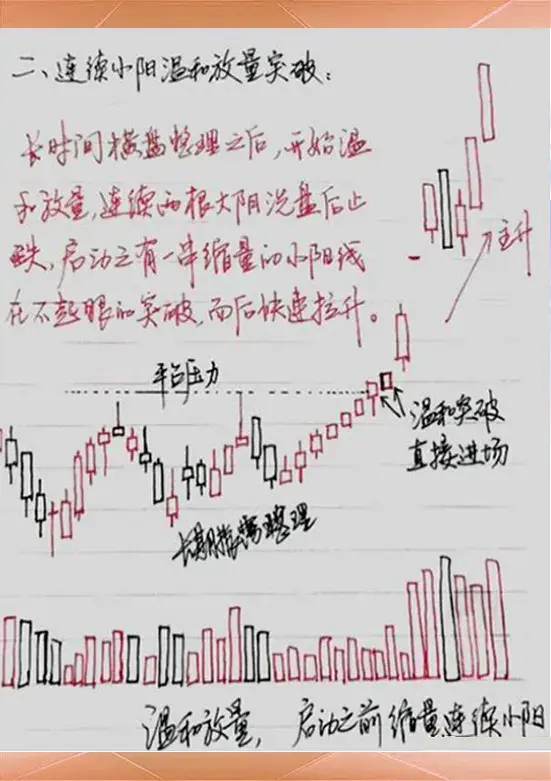 二、连续小阳温和放量突破：
长时间横盘整理之后,开始温
和放量,连续两根大阴洗盘后止
跌,启动之有一串缩量的小阳线
在不起眼的突破,而后快速拉升。
主升
平台压力
温和突破
直接进场
长期横盘整理
温和放量， 启动之前缩量连续小阳